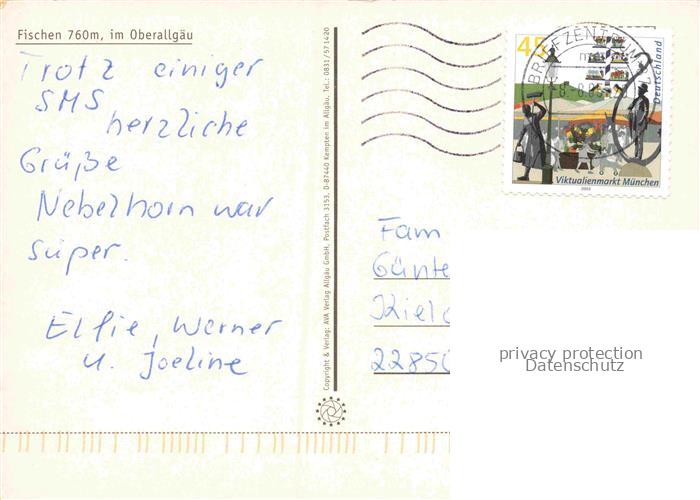 Fischen 760m, im Oberallgäu
Trotz einiger
SMS
herzliche
Grüße
Nebelhorn war
super.
Elfie, Werner
u. Joeline
Copyright & Verlag: AVA Verlag Allgäu GmbH, Postfach 3153, D-87440 Kempten im Allgäu, Tel.: 0831/571420
45
Deutschland
BRIEFZENTRUM
Viktualienmarkt München
2003
Fam
Günte
Kiel
22850
privacy protection
Datenschutz